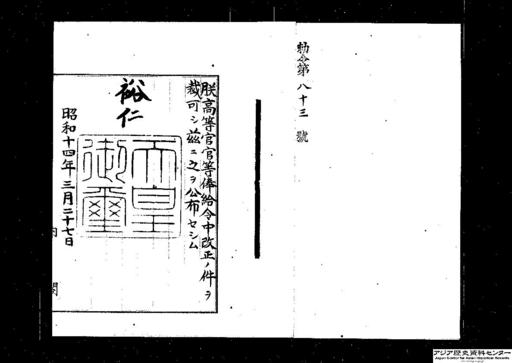 勅令第八十三號
朕高等官官等俸給令中改正ノ件ヲ
裁可シ茲ニ之ヲ公布セシム
裕仁
天皇
御璽
昭和十四年三月二十七日
内閣
アジア歴史資料センター
Japan Center for Asian Historical Records